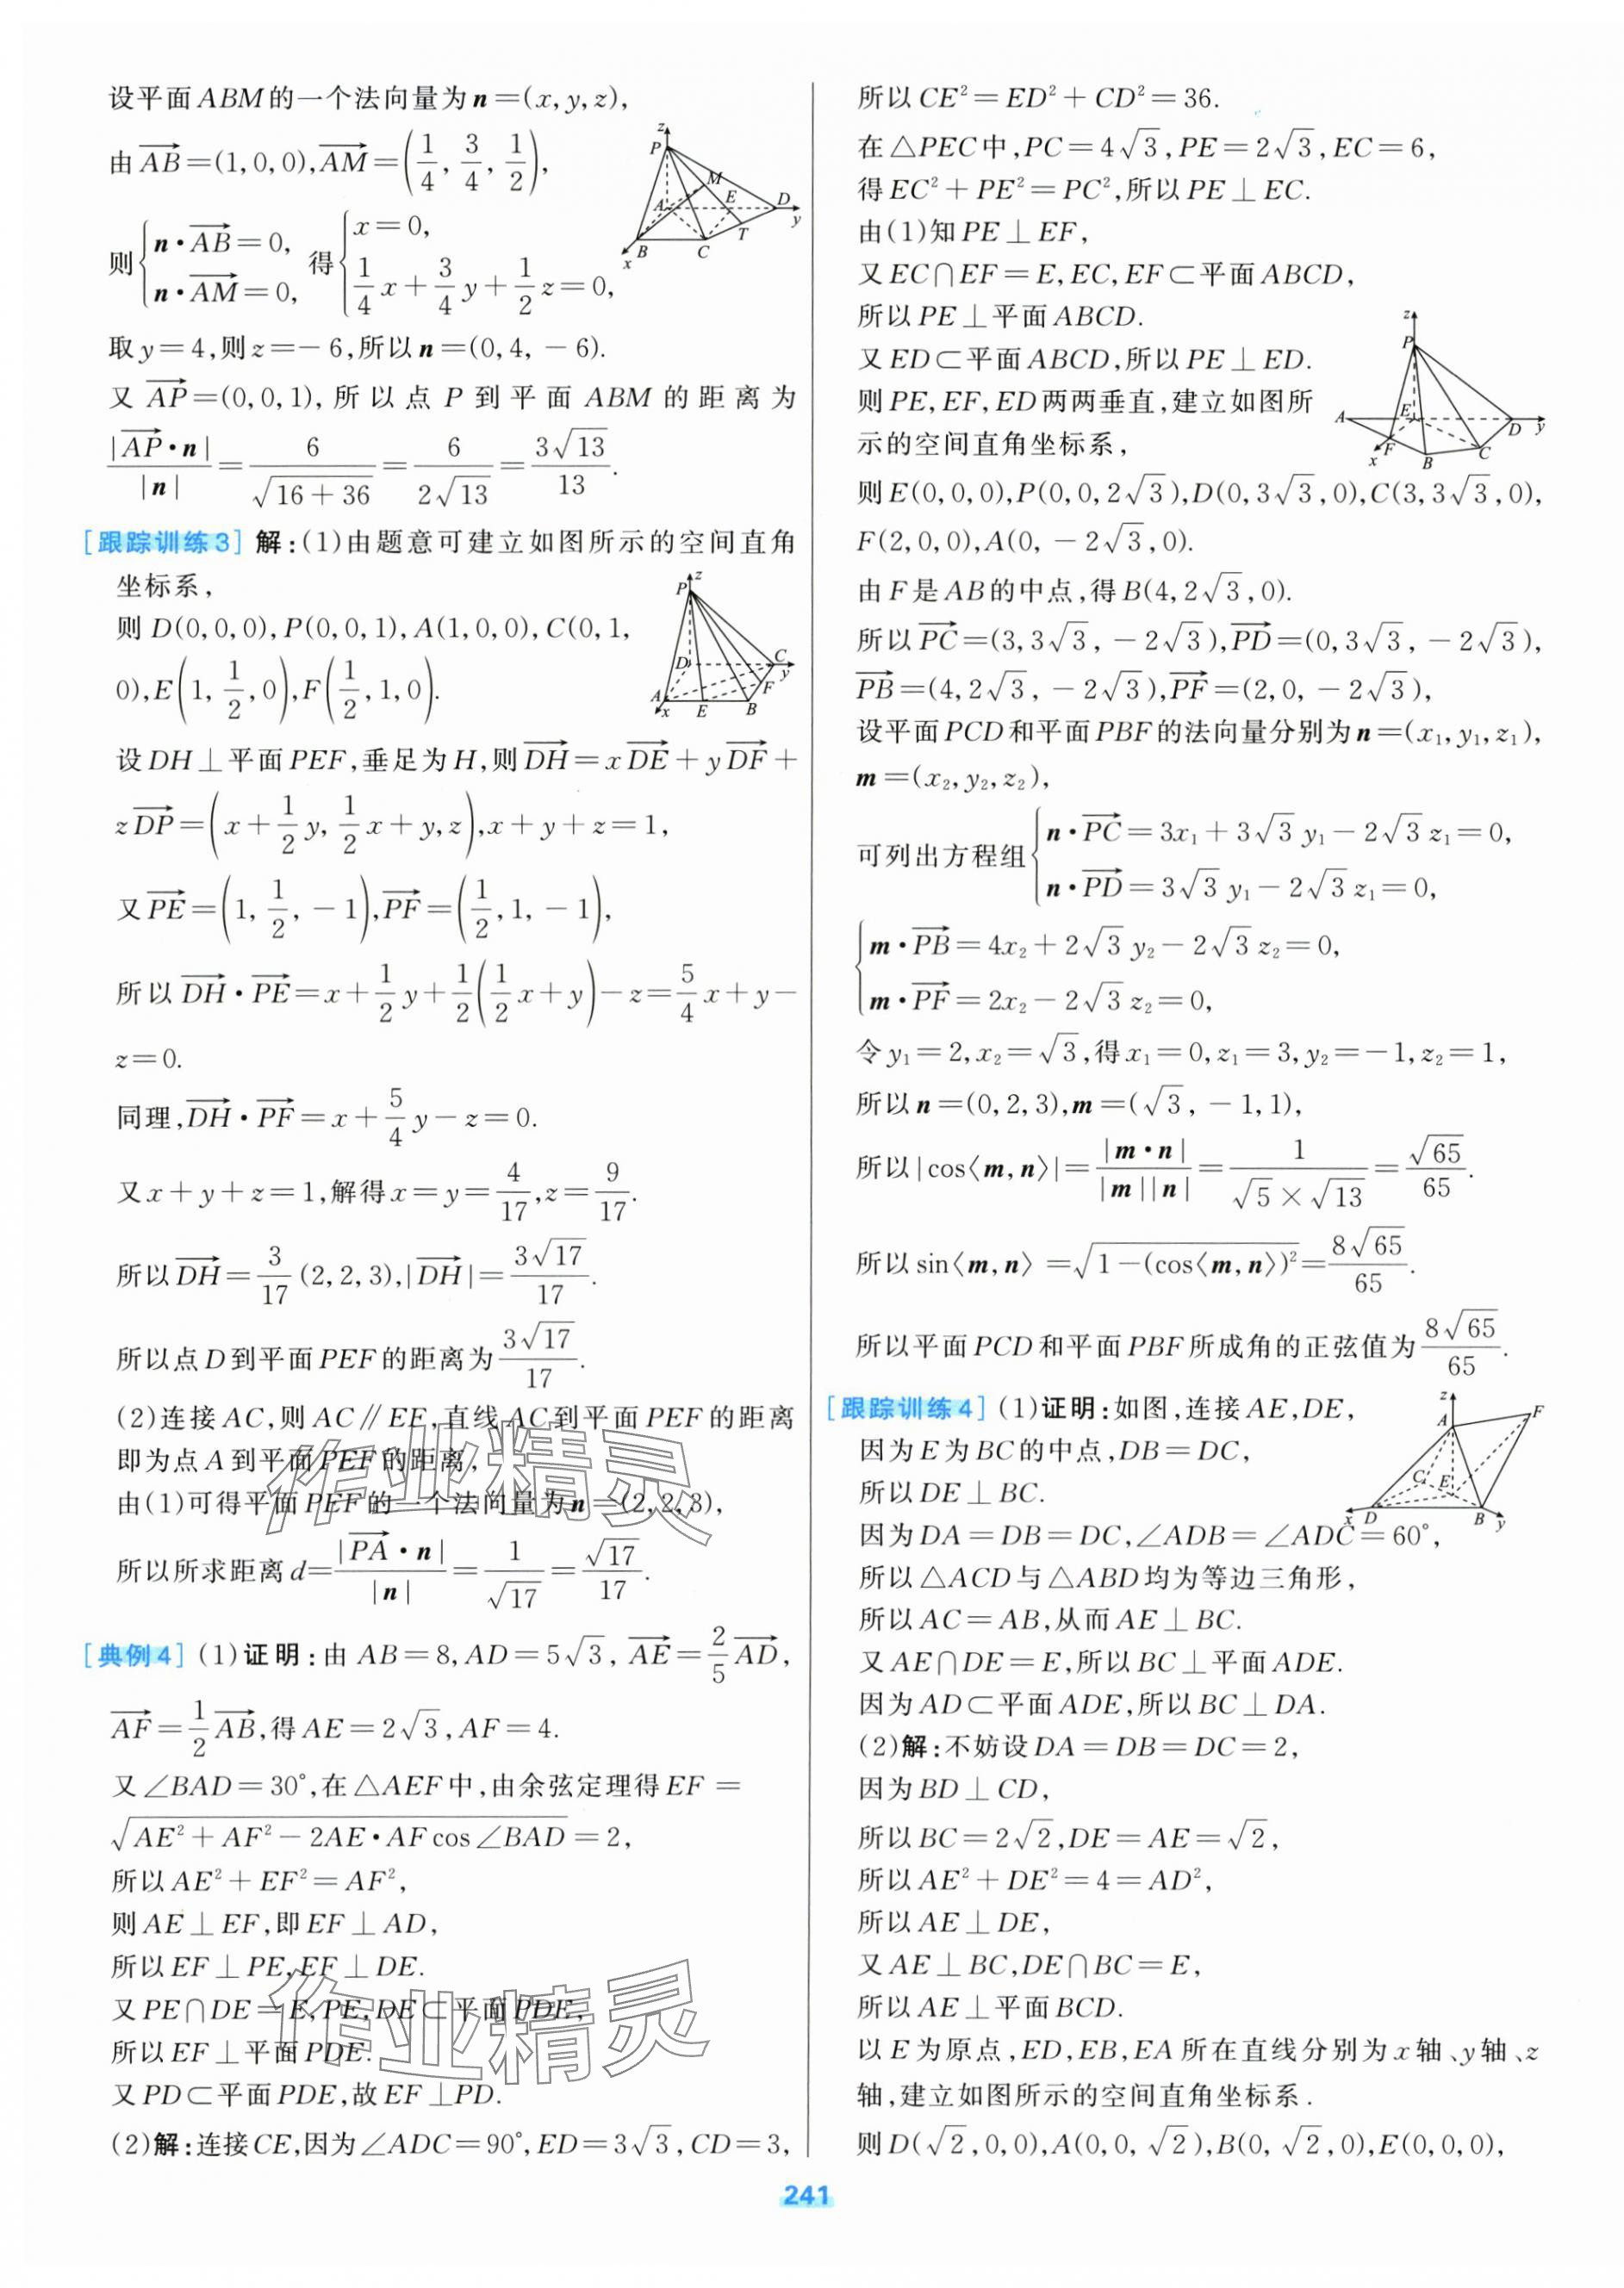 设平面ABM的一个法向量为n=(x,y,z),
由AB→=(1,0,0),AM→=(1/4,3/4,1/2),
则{n·AB→=0, n·AM→=0, 得{x=0, 1/4x+3/4y+1/2z=0,
取y=4,则z=-6,所以n=(0,4,-6).
又AP→=(0,0,1),所以点P到平面ABM的距离为
|AP→·n|/|n|=6/√(16+36)=6/(2√13)=3√13/13.
z
P
M
A
E
D
y
T
B
C
x
[跟踪训练3] 解:(1)由题意可建立如图所示的空间直角
坐标系,
则D(0,0,0),P(0,0,1),A(1,0,0),C(0,1,
0),E(1,1/2,0),F(1/2,1,0).
P
z
D
C
y
F
A
x
E
B
设DH⊥平面PEF,垂足为H,则DH→=xDE→+yDF→+
zDP→=(x+1/2y,1/2x+y,z),x+y+z=1,
又PE→=(1,1/2,-1),PF→=(1/2,1,-1),
所以DH→·PE→=x+1/2y+1/2(1/2x+y)-z=5/4x+y-
z=0.
同理,DH→·PF→=x+5/4y-z=0.
又x+y+z=1,解得x=y=4/17,z=9/17.
所以DH→=3/17(2,2,3),|DH→|=3√17/17.
所以点D到平面PEF的距离为3√17/17.
(2)连接AC,则AC∥EF,直线AC到平面PEF的距离
即为点A到平面PEF的距离,
由(1)可得平面PEF的一个法向量为n=(2,2,3),
所以所求距离d=|PA→·n|/|n|=1/√17=√17/17.
作业精灵
[典例4] (1)证明:由AB=8,AD=5√3,AE→=2/5AD→,
AF→=1/2AB→,得AE=2√3,AF=4.
又∠BAD=30°,在△AEF中,由余弦定理得EF=
√(AE²+AF²-2AE·AFcos∠BAD)=2,
所以AE²+EF²=AF²,
则AE⊥EF,即EF⊥AD,
所以EF⊥PE,EF⊥DE.
又PE∩DE=E,PE,DE⊂平面PDE,
所以EF⊥平面PDE.
又PD⊂平面PDE,故EF⊥PD.
作业精灵
(2)解:连接CE,因为∠ADC=90°,ED=3√3,CD=3,
所以CE²=ED²+CD²=36.
在△PEC中,PC=4√3,PE=2√3,EC=6,
得EC²+PE²=PC²,所以PE⊥EC.
由(1)知PE⊥EF,
又EC∩EF=E,EC,EF⊂平面ABCD,
所以PE⊥平面ABCD.
又ED⊂平面ABCD,所以PE⊥ED.
则PE,EF,ED两两垂直,建立如图所
示的空间直角坐标系,
z
P
A
E
D
y
F
x
B
C
则E(0,0,0),P(0,0,2√3),D(0,3√3,0),C(3,3√3,0),
F(2,0,0),A(0,-2√3,0).
由F是AB的中点,得B(4,2√3,0).
所以PC→=(3,3√3,-2√3),PD→=(0,3√3,-2√3),
PB→=(4,2√3,-2√3),PF→=(2,0,-2√3),
设平面PCD和平面PBF的法向量分别为n=(x₁,y₁,z₁),
m=(x₂,y₂,z₂),
可列出方程组{n·PC→=3x₁+3√3y₁-2√3z₁=0, n·PD→=3√3y₁-2√3z₁=0,
{m·PB→=4x₂+2√3y₂-2√3z₂=0, m·PF→=2x₂-2√3z₂=0,
令y₁=2,x₂=√3,得x₁=0,z₁=3,y₂=-1,z₂=1,
所以n=(0,2,3),m=(√3,-1,1),
所以|cos⟨m,n⟩|=|m·n|/(|m||n|)=1/(√5×√13)=√65/65.
所以sin⟨m,n⟩=√(1-(cos⟨m,n⟩)²)=8√65/65.
所以平面PCD和平面PBF所成角的正弦值为8√65/65.
[跟踪训练4] (1)证明:如图,连接AE,DE,
因为E为BC的中点,DB=DC,
所以DE⊥BC.
z
A
F
C
E
x
D
B
y
因为DA=DB=DC,∠ADB=∠ADC=60°,
所以△ACD与△ABD均为等边三角形,
所以AC=AB,从而AE⊥BC.
又AE∩DE=E,所以BC⊥平面ADE.
因为AD⊂平面ADE,所以BC⊥DA.
(2)解:不妨设DA=DB=DC=2,
因为BD⊥CD,
所以BC=2√2,DE=AE=√2,
所以AE²+DE²=4=AD²,
所以AE⊥DE,
又AE⊥BC,DE∩BC=E,
所以AE⊥平面BCD.
以E为原点,ED,EB,EA所在直线分别为x轴、y轴、z
轴,建立如图所示的空间直角坐标系.
则D(√2,0,0),A(0,0,√2),B(0,√2,0),E(0,0,0),
241